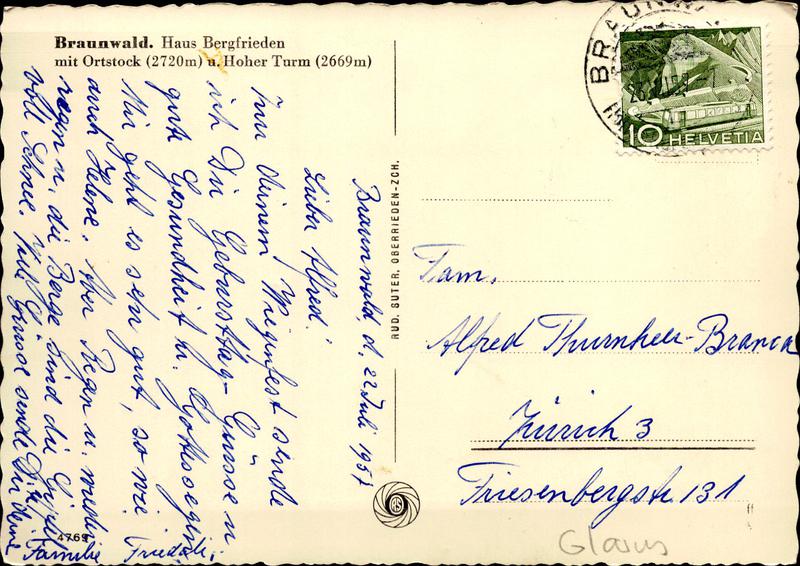 Braunwald. Haus Bergfrieden
mit Ortstock (2720m) u. Hoher Turm (2669m)
Braunwald, d. 22 Juli 1957
Lieber Alfred!
Zu deinem Wiegenfest sende
ich Dir Geburtstag-Grüsse u
gute Gesundheit u. Gottessegen
Mir geht es sehr gut, so wie
auch Helene. Aber Regen u. wieder
regen u. die Berge sind die Gipfel
voll Schnee. Viele Grüsse sende Dir
u. deine
Familie Frieda
4769
RUD. SUTER, OBERRIEDEN-ZCH.
RS
BRAUNWALD
10 HELVETIA
Fam.
Alfred Thurnheer-Branca
Zürich 3
Friesenbergstr 131
Glarus